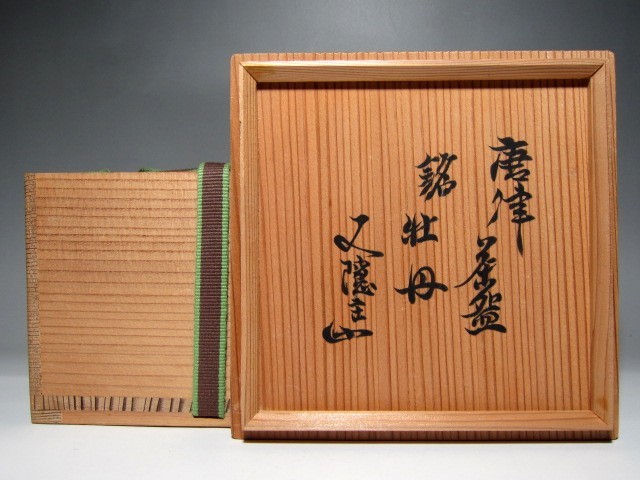 唐津
茶盌
銘
牡丹
又隠主